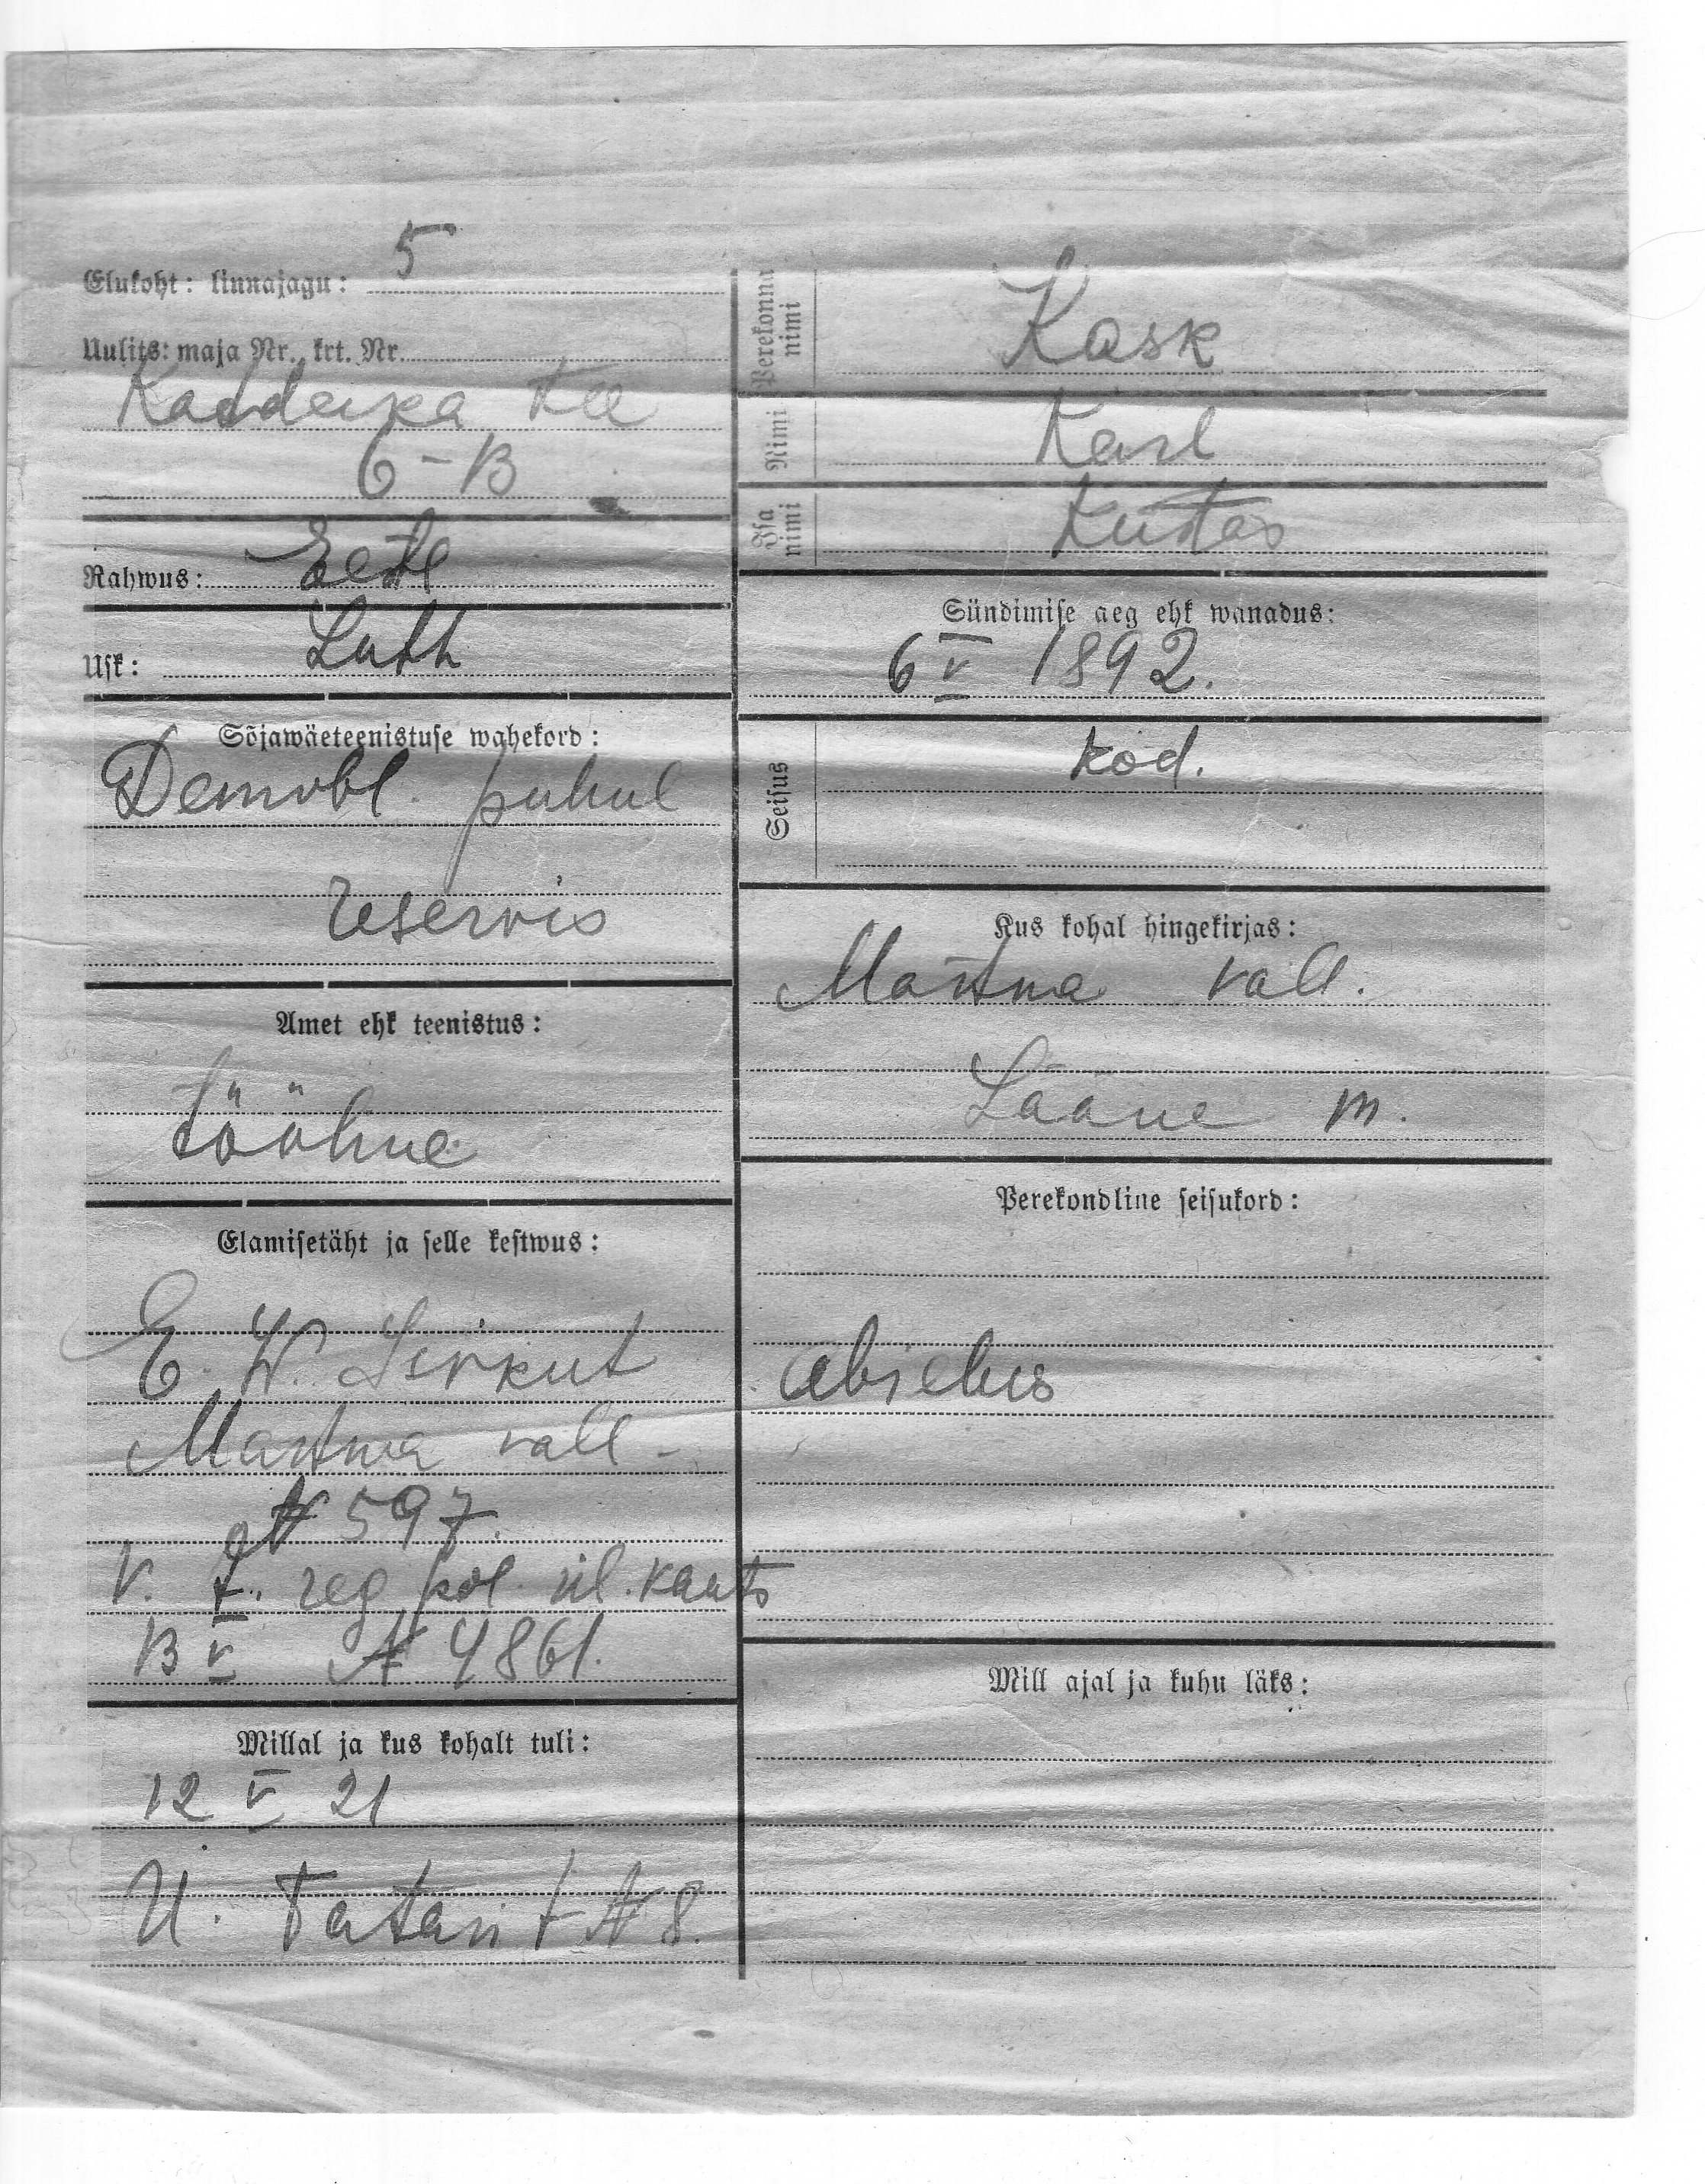 Elukoht: linnajagu: 5
Uulits: maja Nr., krt. Nr.
Kadderka tee
6-B
Rahwus: Eestl
Usk: Luth
Sõjawäeteenistuse wahekord:
Demobl. puhul
reservis
Amet ehk teenistus:
tööline
Elamisetäht ja selle kestwus:
E. W.
Martna vall -
№ 597.
V. reg pol. ül. kants
B V № 4861.
Millal ja kus kohalt tuli:
12 V 21
U. Tatari t № 8.
Perekonna nimi
Kask
Nimi
Karl
Isa nimi
Kustas
Sündimise aeg ehk wanadus:
6 V 1892.
Seisus
kod.
Kus kohal hingekirjas:
Martna vall.
Lääne m.
Perekondline seisukord:
abielus
Mill ajal ja kuhu läks: